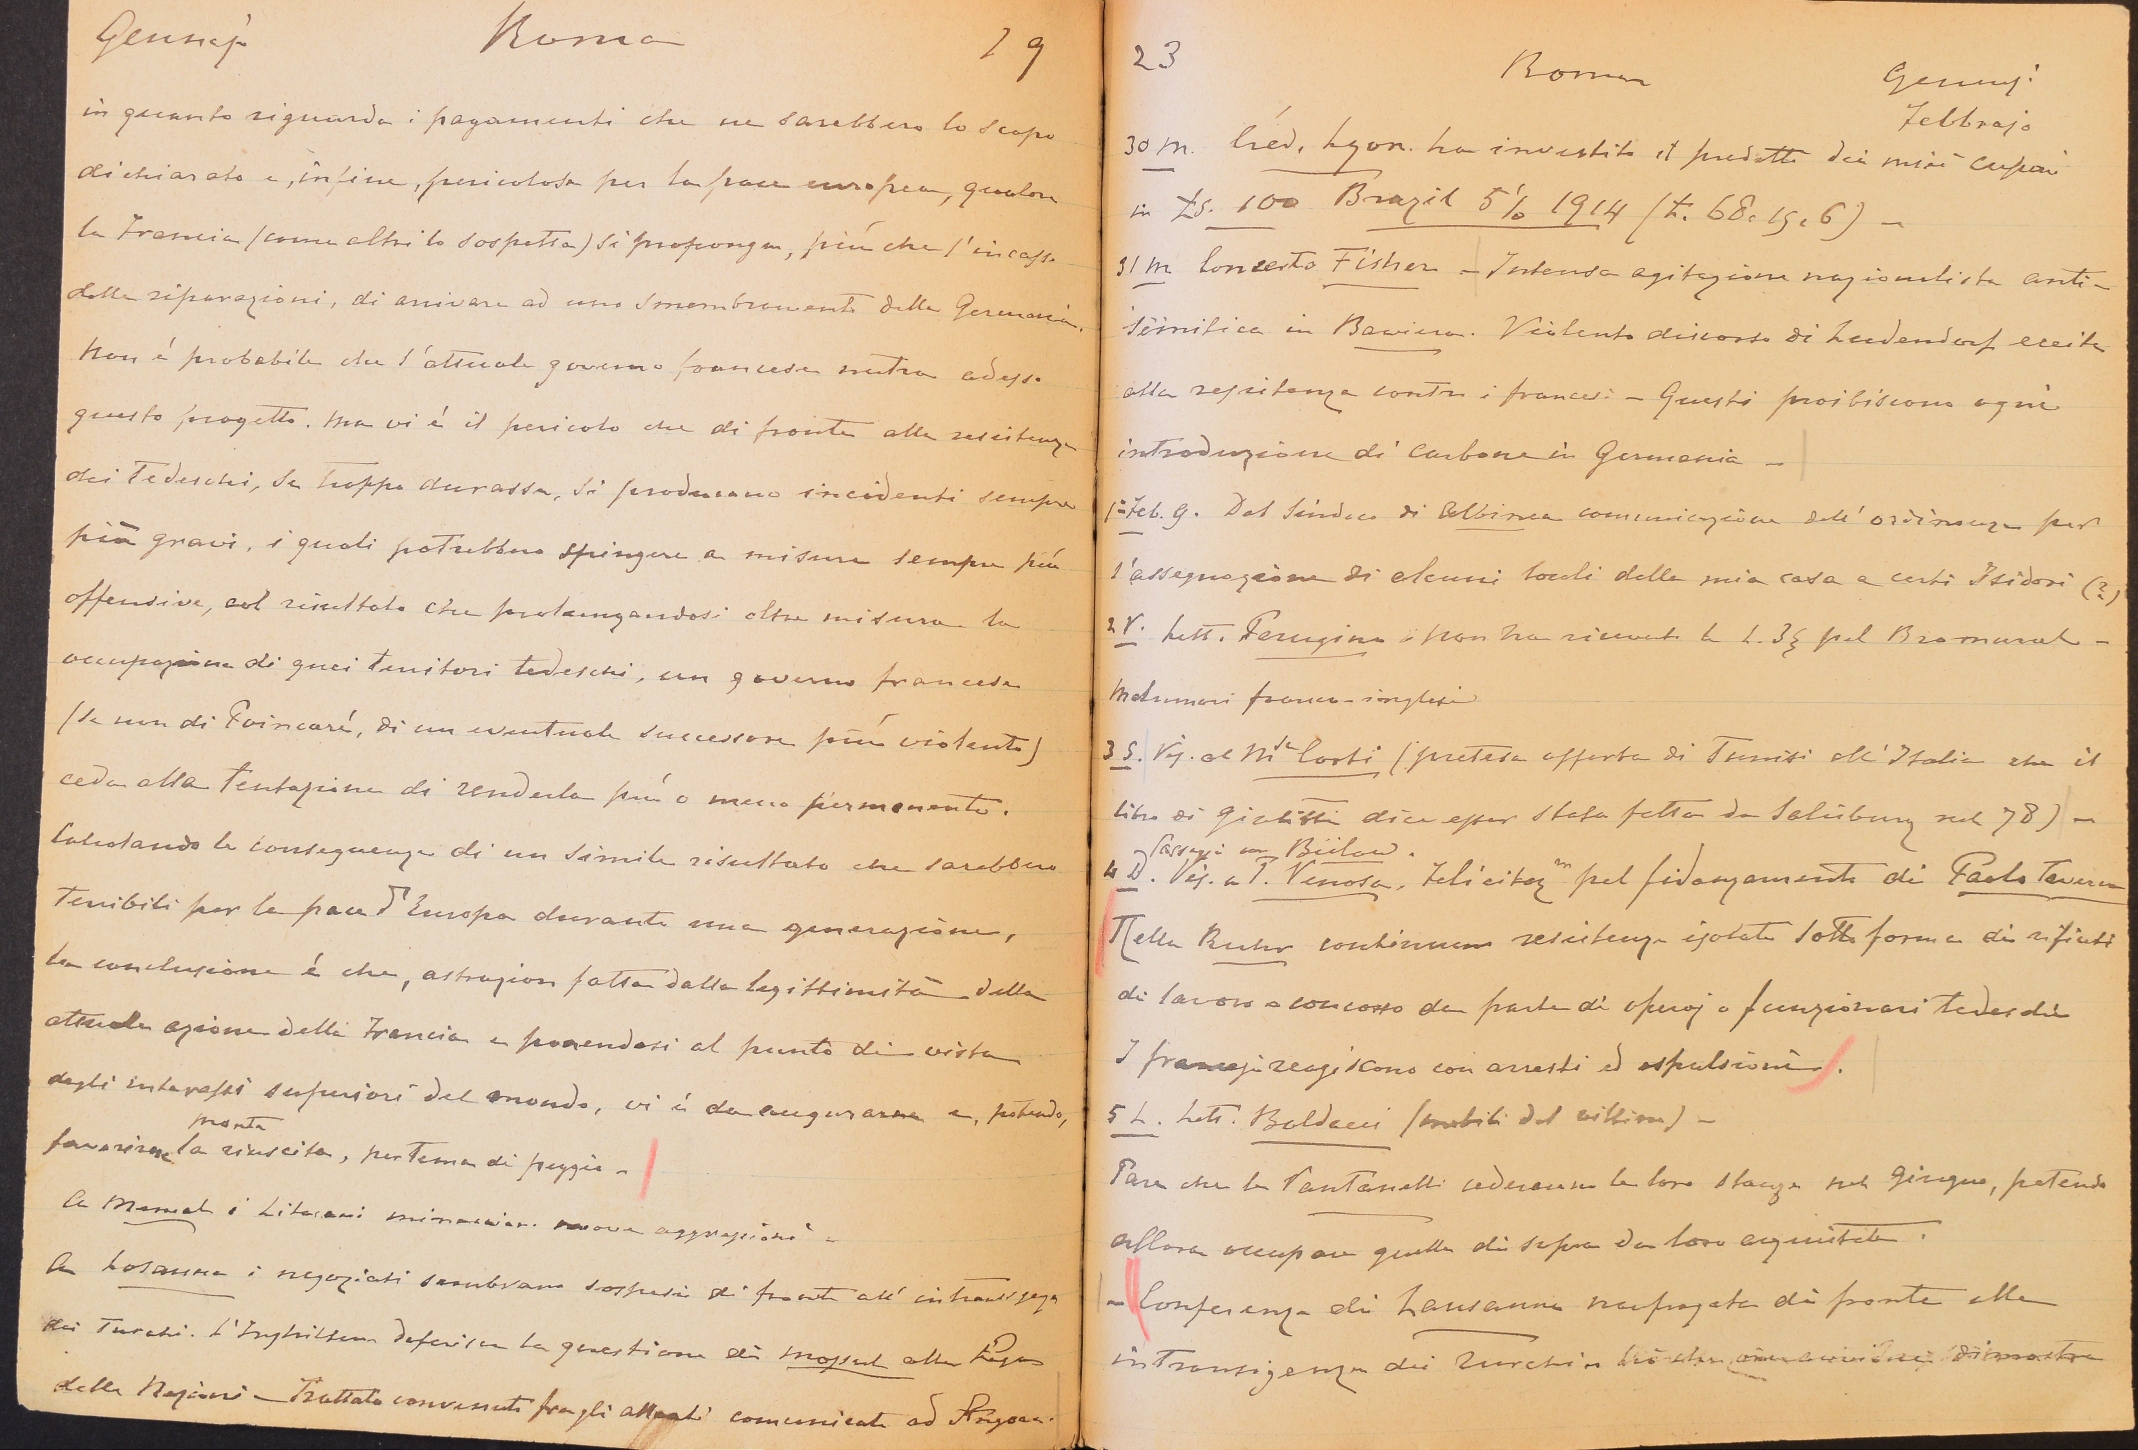 Gennajo Roma 19
in quanto riguarda i pagamenti che ne sarebbero lo scopo
dichiarato e, infine, pericolosa per la pace europea, qualora
la Francia (come altri lo sospetta) si proponga, più che l'incasso
delle riparazioni, di arrivare ad uno smembramento della Germania.
Non é probabile che l'attuale governo francese nutra adesso
questo progetto. Ma vi é il pericolo che di fronte alla resistenza
dei Tedeschi, se troppo durasse, si producano incidenti sempre
più gravi, i quali potrebbero spingere a misure sempre più
offensive, col risultato che prolungandosi oltre misura la
occupazione di quei territori tedeschi, un governo francese
(se non di Poincaré, di un eventuale successore più violento)
ceda alla tentazione di renderla più o meno permanente.
Calcolando le conseguenze di un simile risultato che sarebbero
terribili per la pace d'Europa durante una generazione,
la conclusione é che, astrazion fatta dalla legittimità della
attuale azione della Francia e ponendosi al punto di vista
degli interessi superiori del mondo, vi é da augurarne e, potendo,
pronta
favorirne la riuscita, per tema di peggio -
A Memel i Lituani minacciano nuove aggressioni -
A Losanna i negoziati sembrano sospesi di fronte all' intransigenza
dei Turchi. L'Inghilterra deferisce la questione di Mossul alla Lega
delle Nazioni - Trattato convenuto fra gli alleati comunicato ad Angora.
23 Roma Gennaj:
Febbrajo
30 M. Créd. Lyon. ha investito il prodotto dei miei cuponi
in Ls. 100 Brazil 5% 1914 (L. 68.15.6) -
31 M Concerto Fisher - Intensa agitazione nazionalista anti-
semitica in Baviera. Violento discorso di Ludendorf eccita
alla resistenza contro i francesi - Questi proibiscono ogni
introduzione di carbone in Germania -
1° Feb. G. Dal Sindaco di Albinea comunicazione dell' ordinanza per
l'assegnazione di alcuni locali della mia casa a certi Isidori (?)
2 V. Lett. Perugino : non ha ricevuto le L. 35 pel Bromural -
Malumori franco-inglesi
3 S. Vis. al Mse Corti (pretesa offerta di Tunisi all' Italia che il
libro di Giolitti dice esser stata fatta da Salisbury nel 78) -
Passeggi con Bülow.
4 D. Vis. a P. Venosa. Felicitazm pel fidanzamento di Paolo Taverna
Nella Ruhr continuano resistenze isolate sotto forma di rifiuti
di lavoro o concorso da parte di operaj o funzionari tedeschi
I francesi reagiscono con arresti ed espulsioni.
5 L. Lett. Baldacci (mobili del villino) -
Pare che le Pantanelli cederanno le loro stanze nel Giugno, potendo
allora occupare quelle di sopra da loro acquistate.
- Conferenza di Lausanne naufragata di fronte alla
intransigenza dei Turchi - dimostra